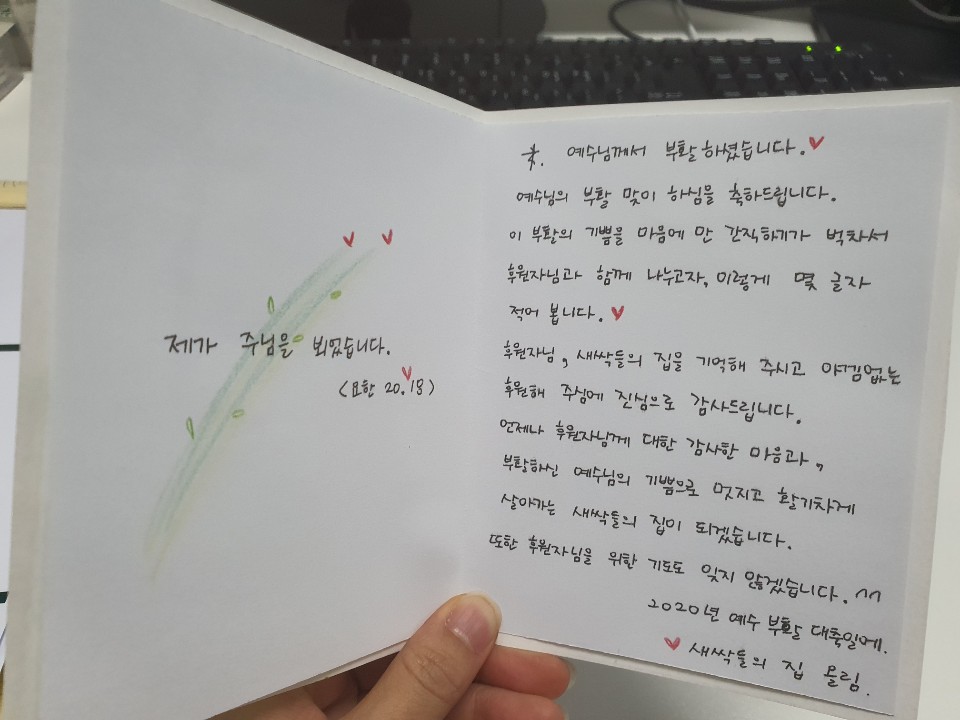 제가 주님을 뵈었습니다.
(요한 20.18)
예수님께서 부활하셨습니다.
예수님의 부활 맞이 하심을 축하드립니다.
이 부활의 기쁨을 마음에 만 간직하기가 벅차서
후원자님과 함께 나누고자, 이렇게 몇 글자
적어 봅니다.
후원자님, 새싹들의 집을 기억해 주시고 아낌없는
후원해 주심에 진심으로 감사드립니다.
언제나 후원자님께 대한 감사한 마음과,
부활하신 예수님의 기쁨으로 멋지고 활기차게
살아가는 새싹들의 집이 되겠습니다.
또한 후원자님을 위한 기도도 잊지 않겠습니다. ^^
2020년 예수 부활 대축일에.
새싹들의 집 올림.